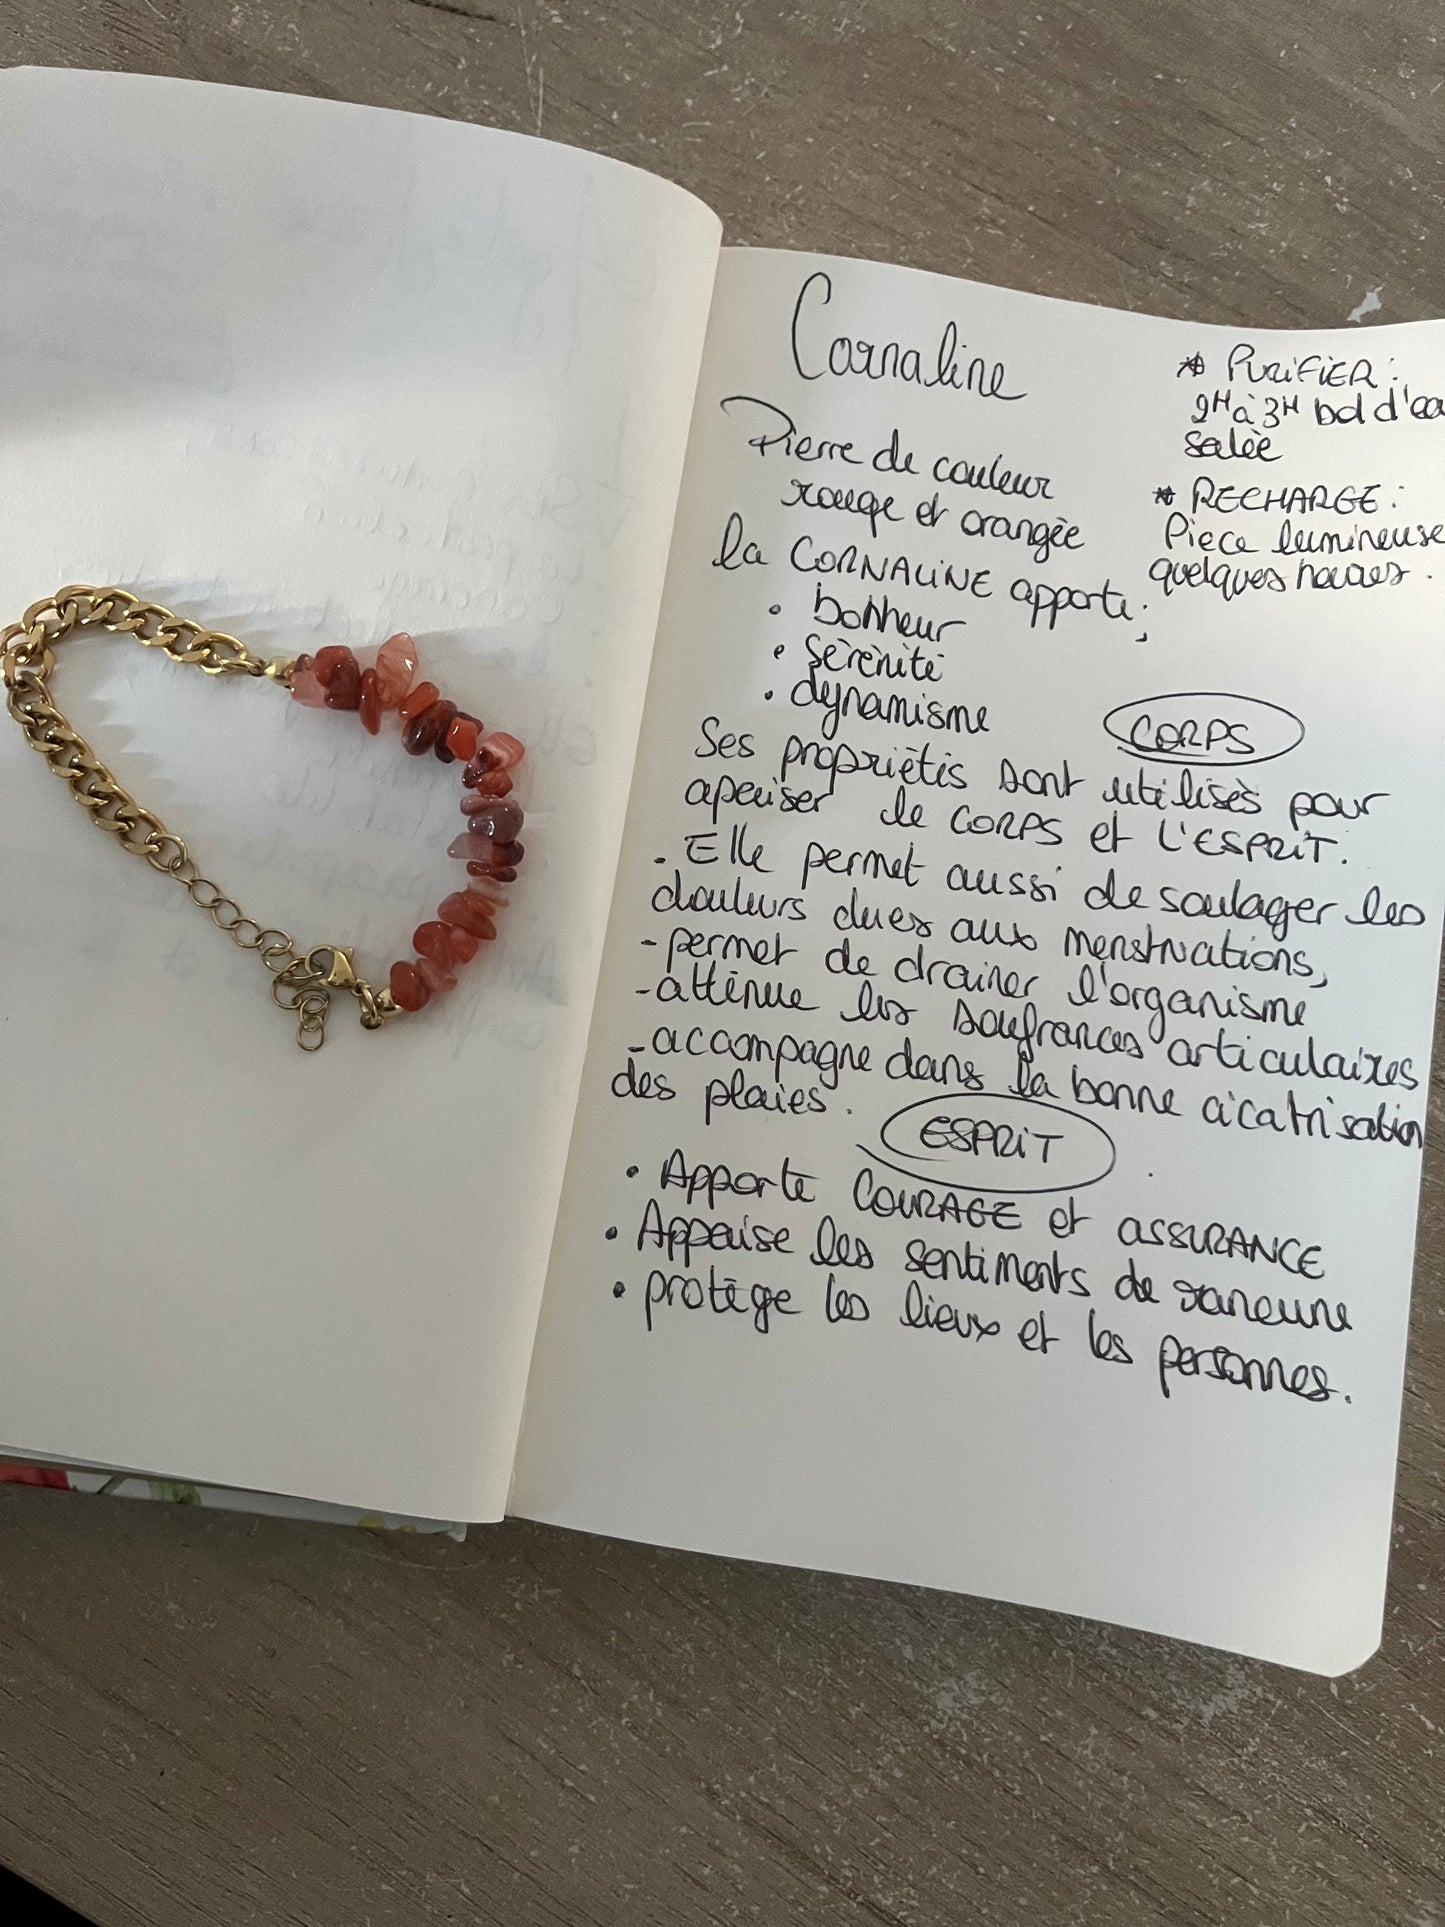 Cornaline
Pierre de couleur
rouge et orangée
la CORNALINE apporte :
• bonheur
• sérénité
• dynamisme
* PURIFIER :
2H à 3H bol d'ea
salée
* RECHARGE :
Piece lumineuse
quelques heures.
CORPS
Ses propriétés sont utilisés pour
apaiser le CORPS et L'ESPRIT.
- Elle permet aussi de soulager les
douleurs dues aux menstruations,
- permet de drainer l'organisme
- atténue les soufrances articulaires
- accompagne dans la bonne cicatrisation
des plaies.
ESPRIT
• Apporte COURAGE et ASSURANCE
• Appaise les sentiments de rancune
• protège les lieux et les personnes.